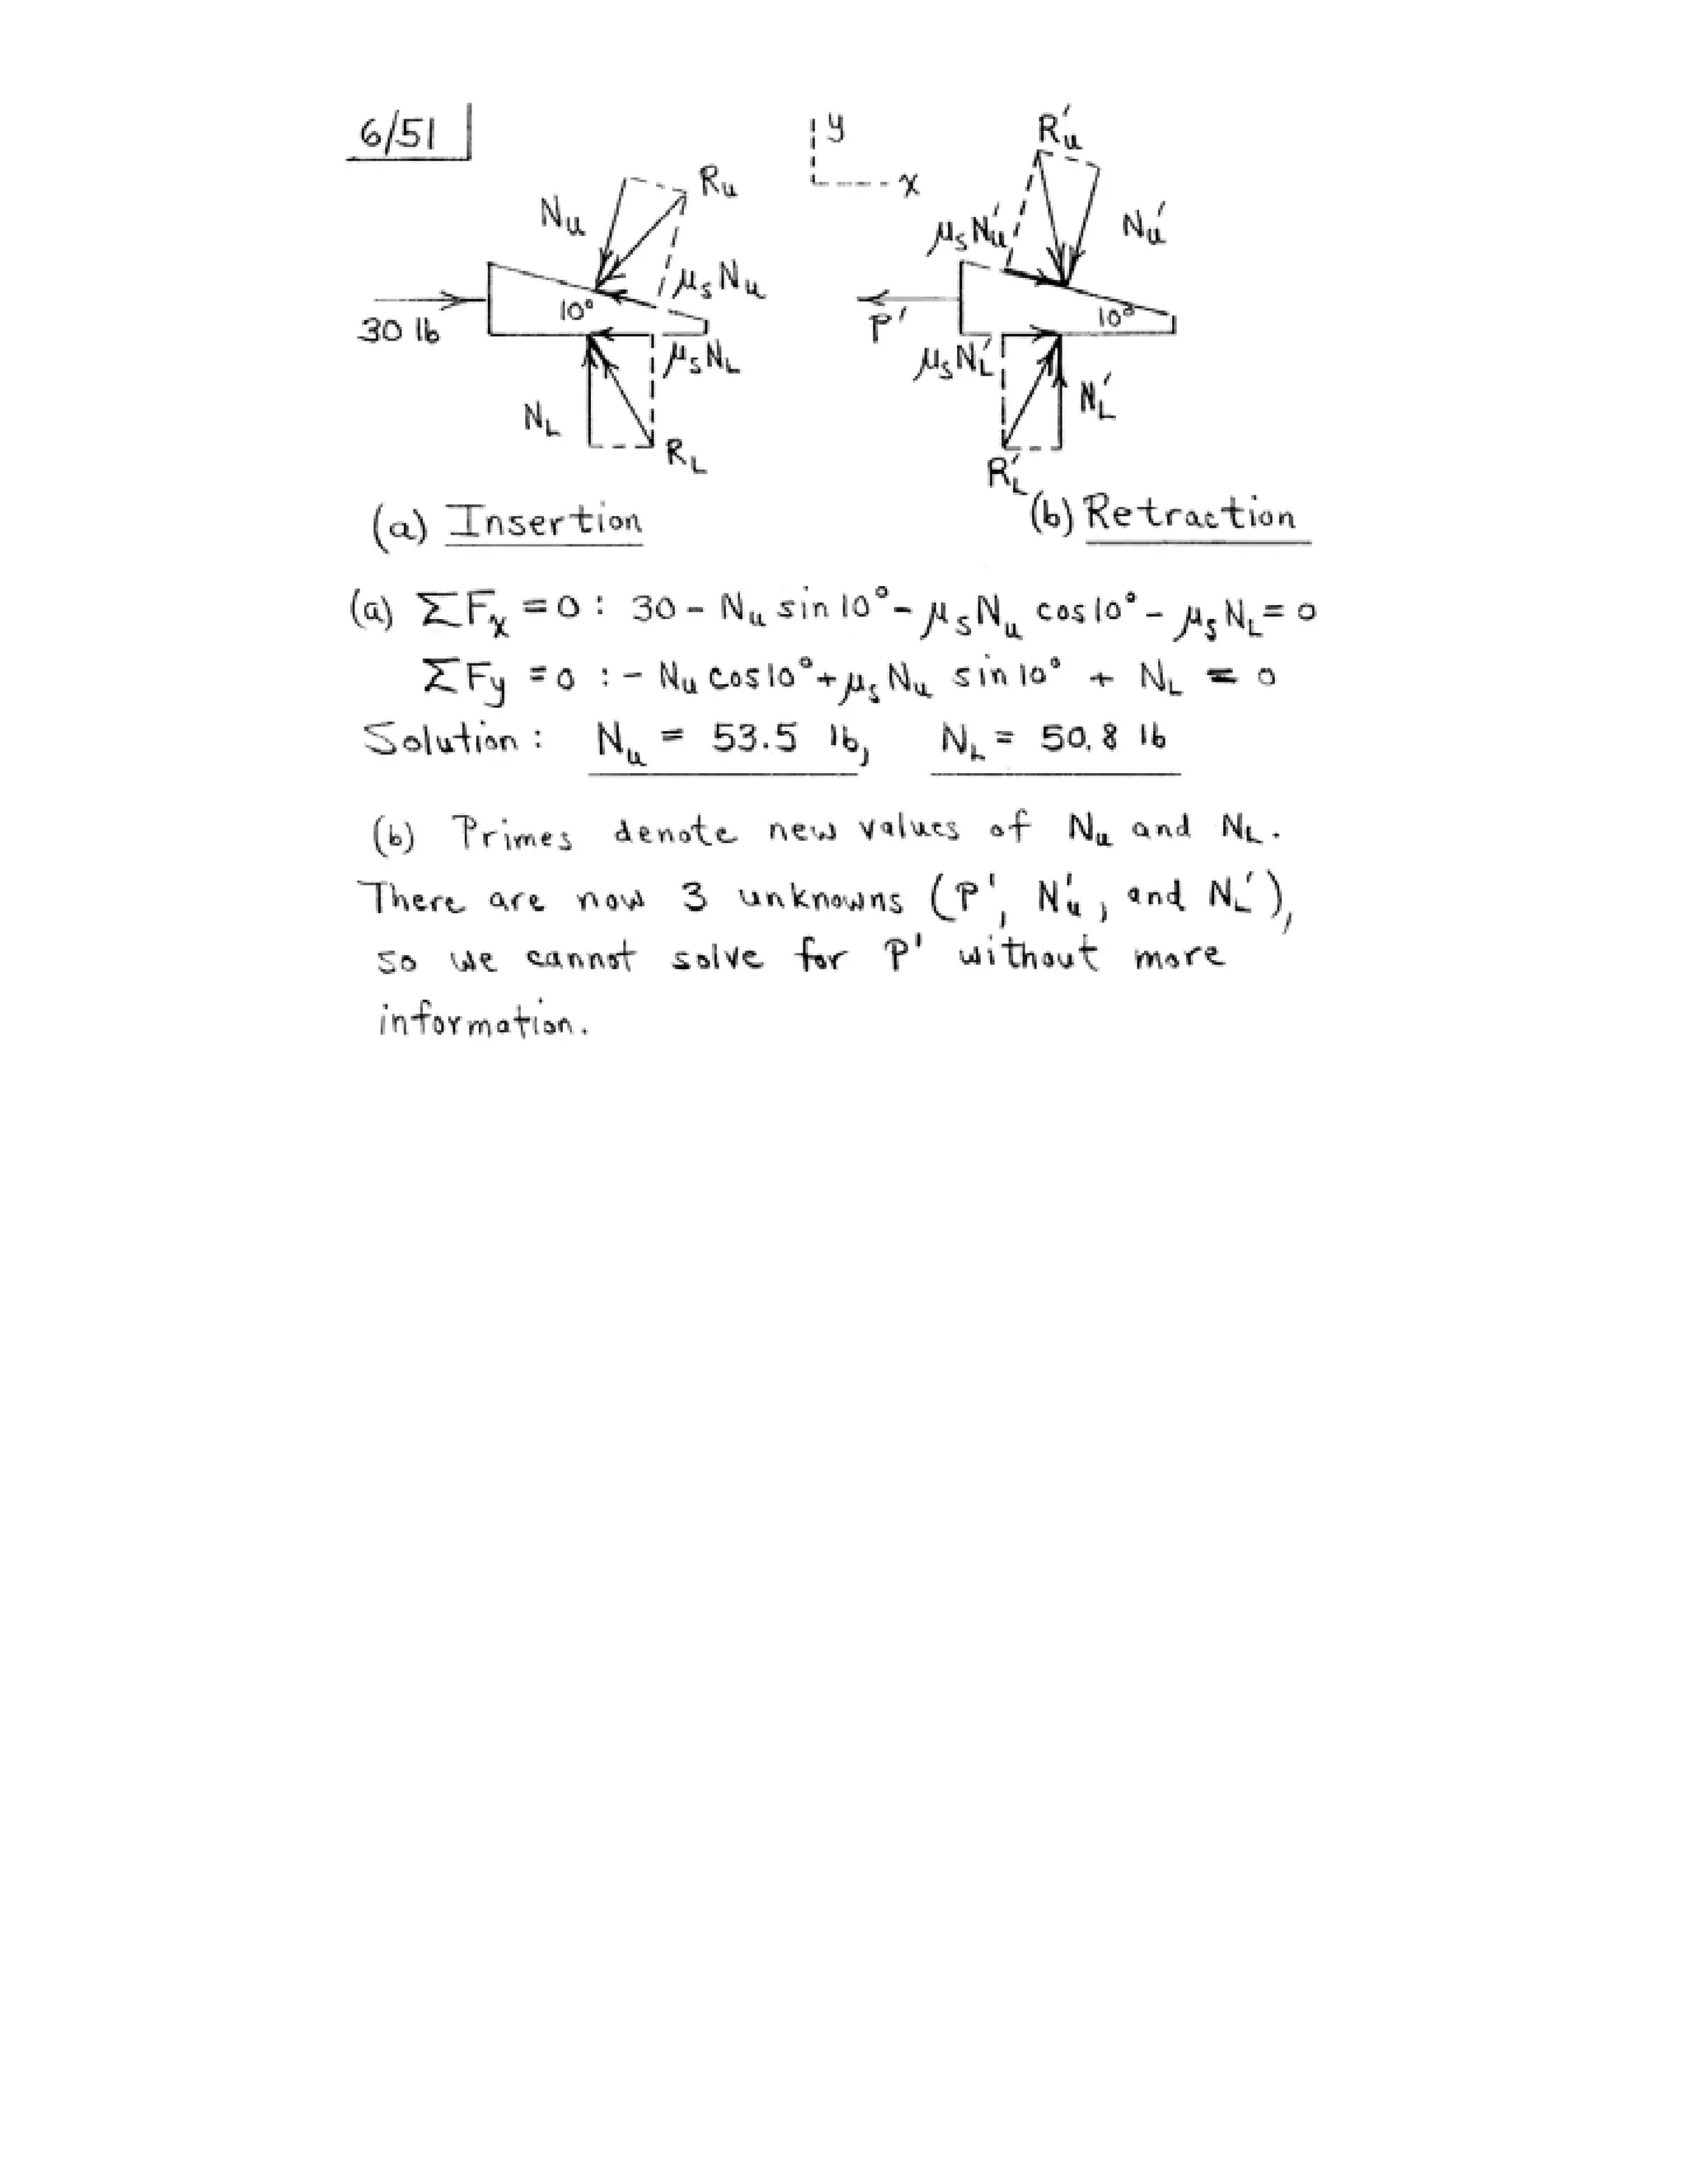 6/51
y
x
R'u
Nu
Ru
μsN'u
N'u
μsNu
10°
30 lb
P'
10°
μsNL
μsN'L
NL
N'L
RL
R'L
(a) Insertion
(b) Retraction
(a) ΣFx = 0 : 30 - Nu sin 10° - μsNu cos 10° - μsNL = 0
ΣFy = 0 : - Nu cos 10° + μsNu sin 10° + NL = 0
Solution : Nu = 53.5 lb, NL = 50.8 lb
(b) Primes denote new values of Nu and NL.
There are now 3 unknowns (P', N'u, and NL'),
so we cannot solve for P' without more
information.